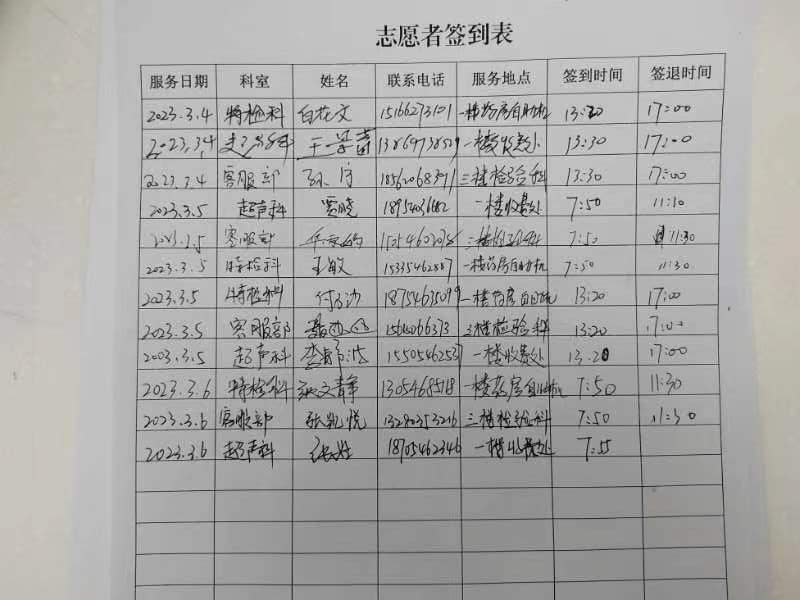 志愿者签到表
服务日期 科室 姓名 联系电话 服务地点 签到时间 签退时间
2023.3.4 特检科 白花文 15166273101 一楼药房自助机 13:20 17:00
2023.3.4 超声科 13:30 17:00
2023.3.4 客服部 三楼检验科 13:30 17:00
2023.3.5 超声科 贾晓 一楼收费处 7:50 11:10
2023.3.5 客服部 三楼检验科 7:50 11:30
2023.3.5 特检科 王敏 15335462887 一楼药房自助机 7:50 11:30
2023.3.5 特检科 18754635099 一楼药房自助机 13:20 17:00
2023.3.5 客服部 三楼检验科 13:20 17:00
2003.3.5 超声科 1550546253 一楼收费处 13:20 17:00
2023.3.6 特检科 张文静 1305468518 一楼药房自助机 7:50 11:30
2023.3.6 客服部 张凯悦 三楼检验科 7:50 11:30
2023.3.6 超声科 18705462346 一楼收费处 7:55